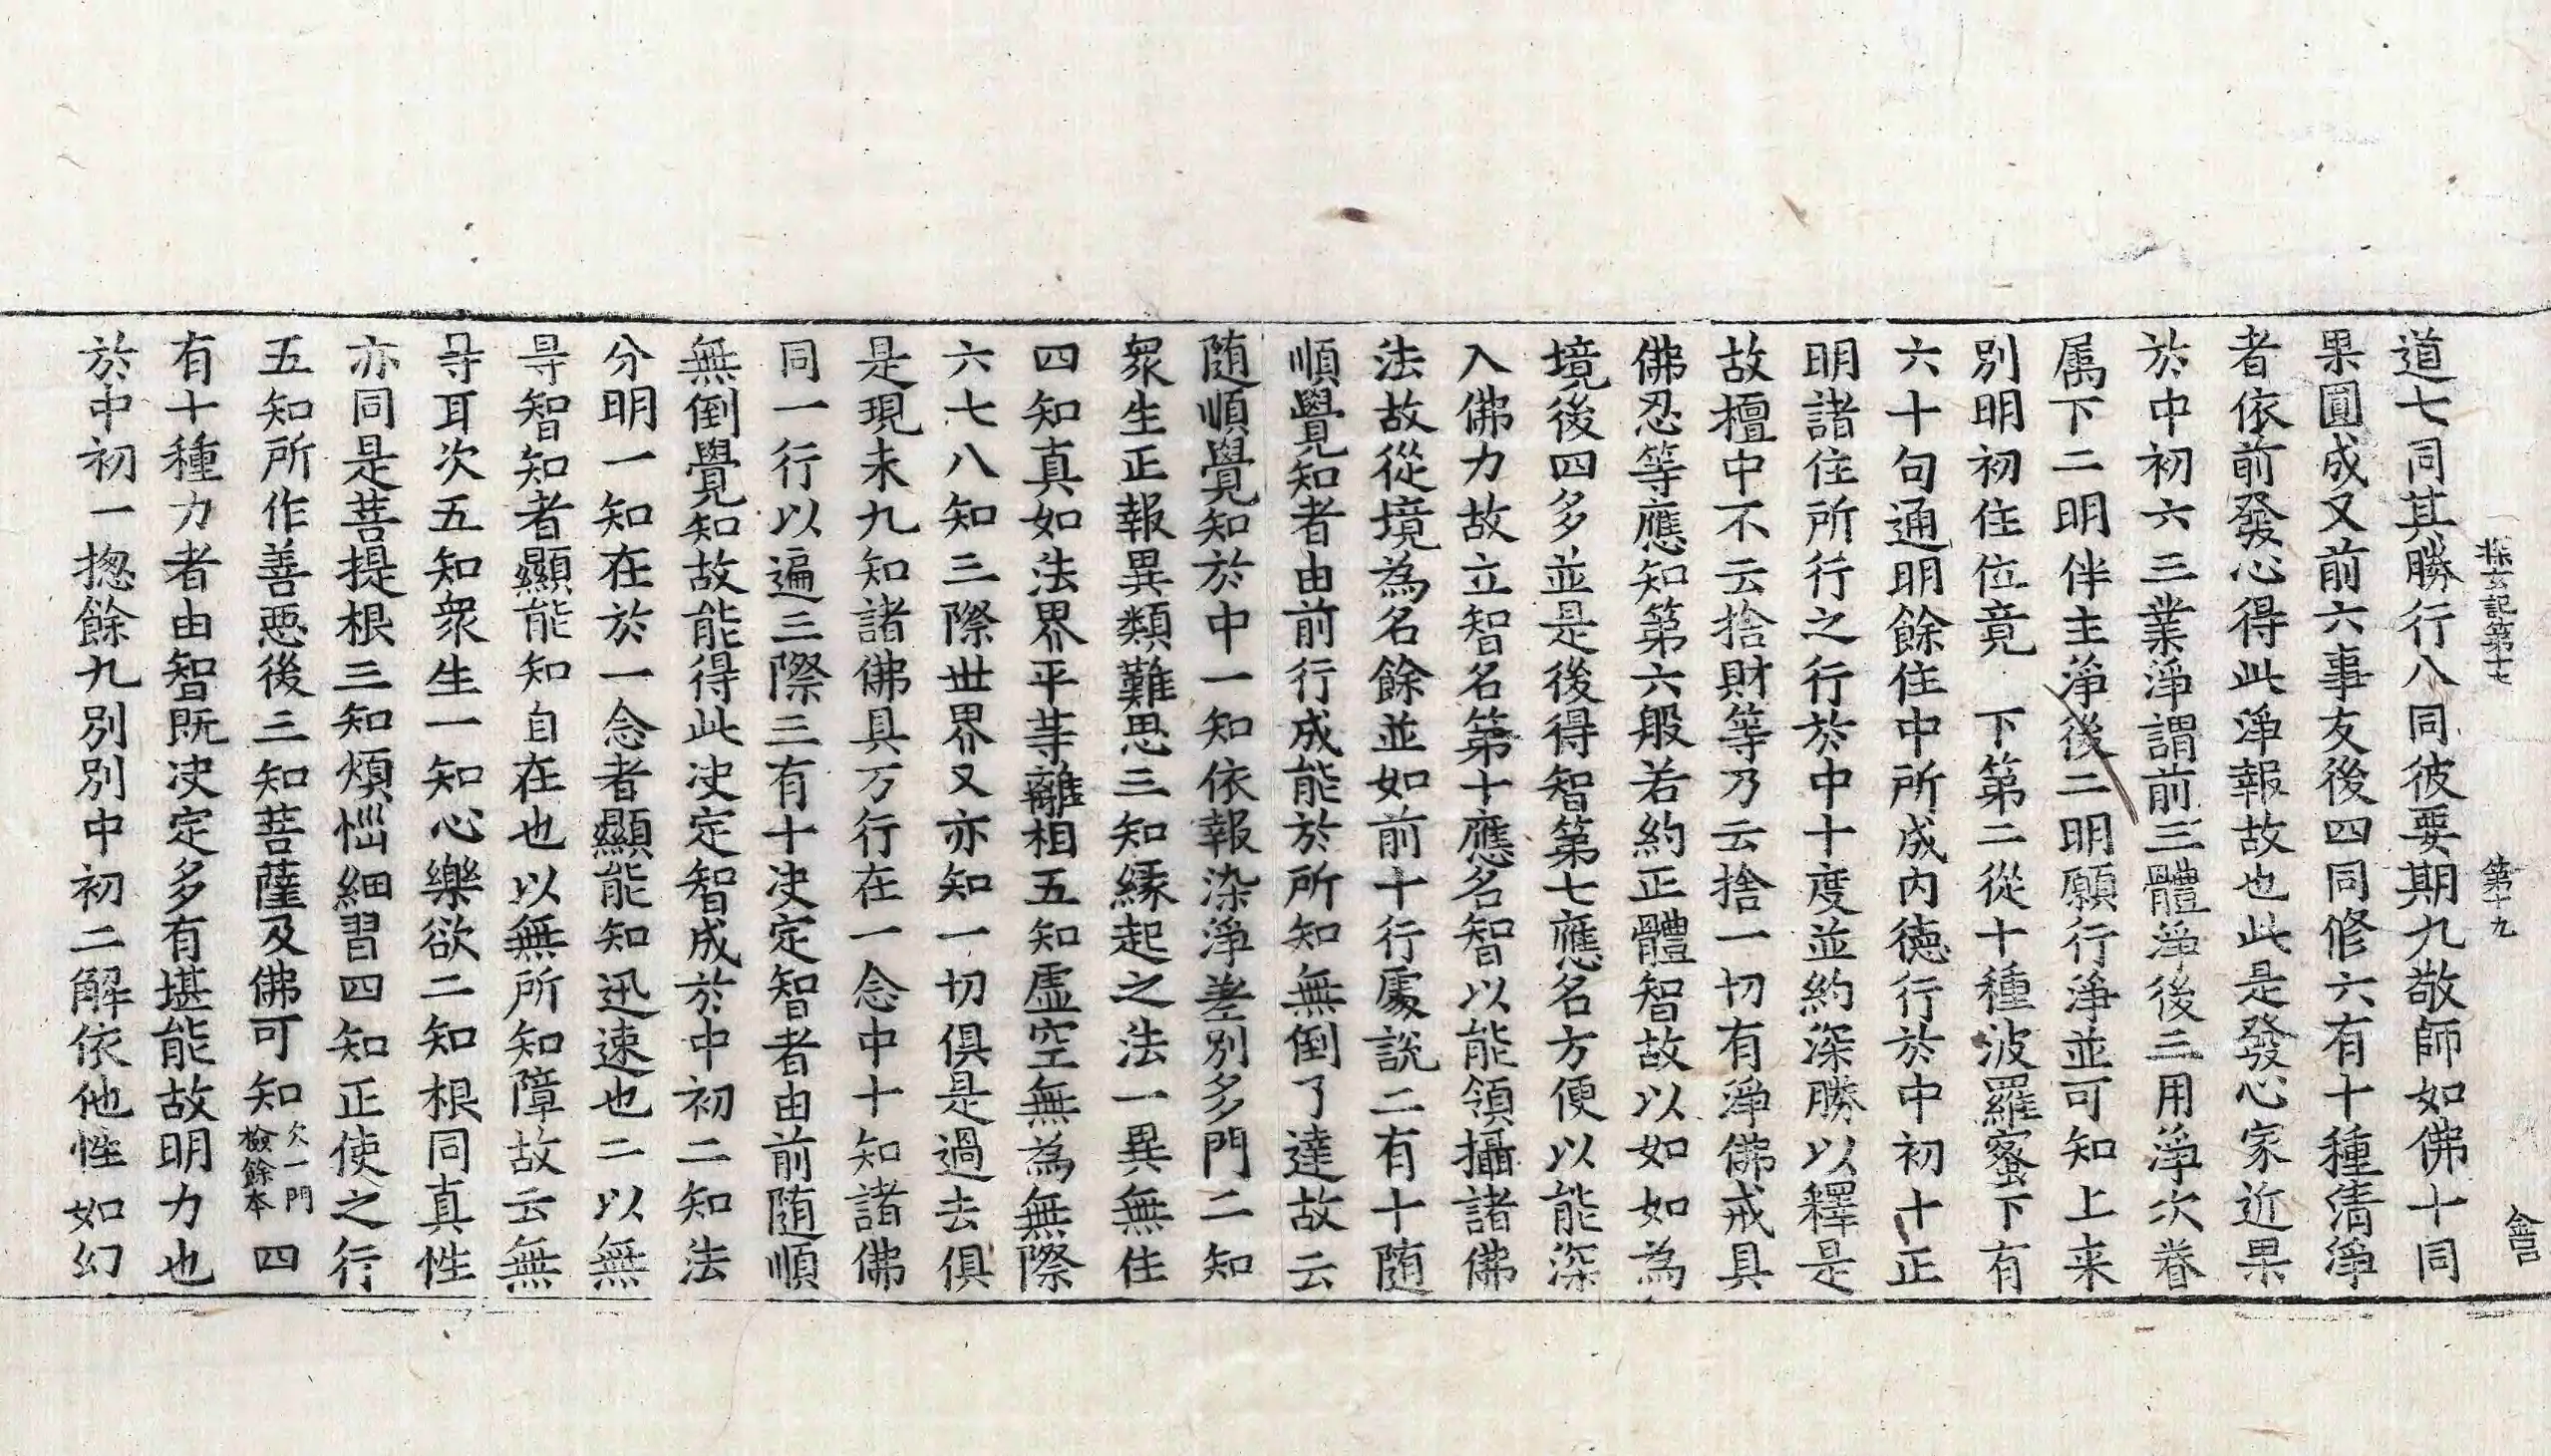 探玄記第十七 第十九 會
道七同其勝行八同彼要期九敬師如佛十同
果圓成又前六事友後四同修六有十種清淨
者依前發心得此淨報故也此是發心家近果
於中初六三業淨謂前三體淨後三用淨次眷
属下二明伴主淨後二明願行淨並可知上来
別明初住位竟 下第二從十種波羅蜜下有
六十句通明餘住中所成内徳行於中初十正
明諸住所行之行於中十度並約深勝以釋是
故檀中不云捨財等乃云捨一切有淨佛戒具
佛忍等應知第六般若約正體智故以如如為
境後四多並是後得智第七應名方便以能深
入佛力故立智名第十應名智以能領攝諸佛
法故從境為名餘並如前十行處說二有十随
順覺知者由前行成能於所知無倒了達故云
随順覺知於中一知依報染淨差別多門二知
衆生正報異類難思三知縁起之法一異無住
四知真如法界平䓁離相五知虛空無為無際
六七八知三際世界又亦知一切俱是過去俱
是現未九知諸佛具万行在一念中十知諸佛
同一行以遍三際三有十决定智者由前随順
無倒覺知故能得此决定智成於中初二知法
分明一知在於一念者顯能知迅速也二以無
㝵智知者顯能知自在也以無所知障故云無
㝵耳次五知衆生一知心樂欲二知根同真性
亦同是菩提根三知煩惱細習四知正使之行
五知所作善惡後三知菩薩及佛可知欠一門檢餘本四
有十種力者由智既决定多有堪能故明力也
於中初一揔餘九別別中初二解依他性如幻